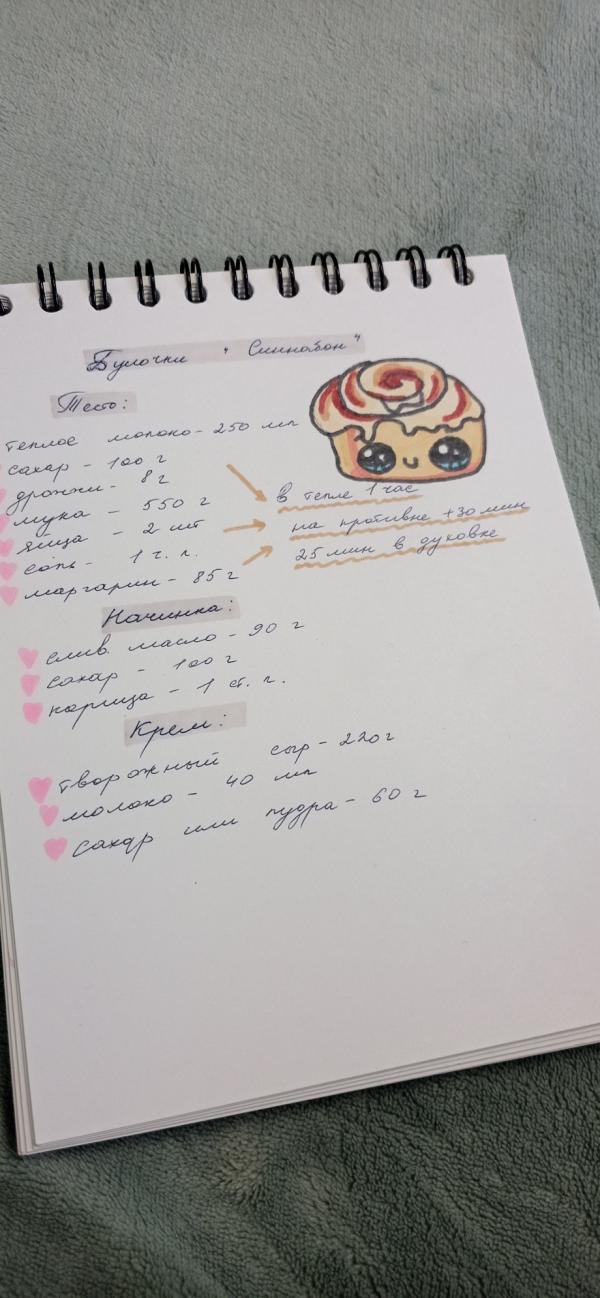 Булочки "Синнабон"
Тесто:
теплое молоко - 250 мл
сахар - 100 г
дрожжи - 8 г
мука - 550 г
яйца - 2 шт
соль - 1 ч. л.
маргарин - 85 г
в тепле 1 час
на противне +30 мин
25 мин в духовке
Начинка:
слив. масло - 90 г
сахар - 100 г
корица - 1 ст. л.
Крем:
творожный сыр - 220 г
молоко - 40 мл
сахар или пудра - 60 г